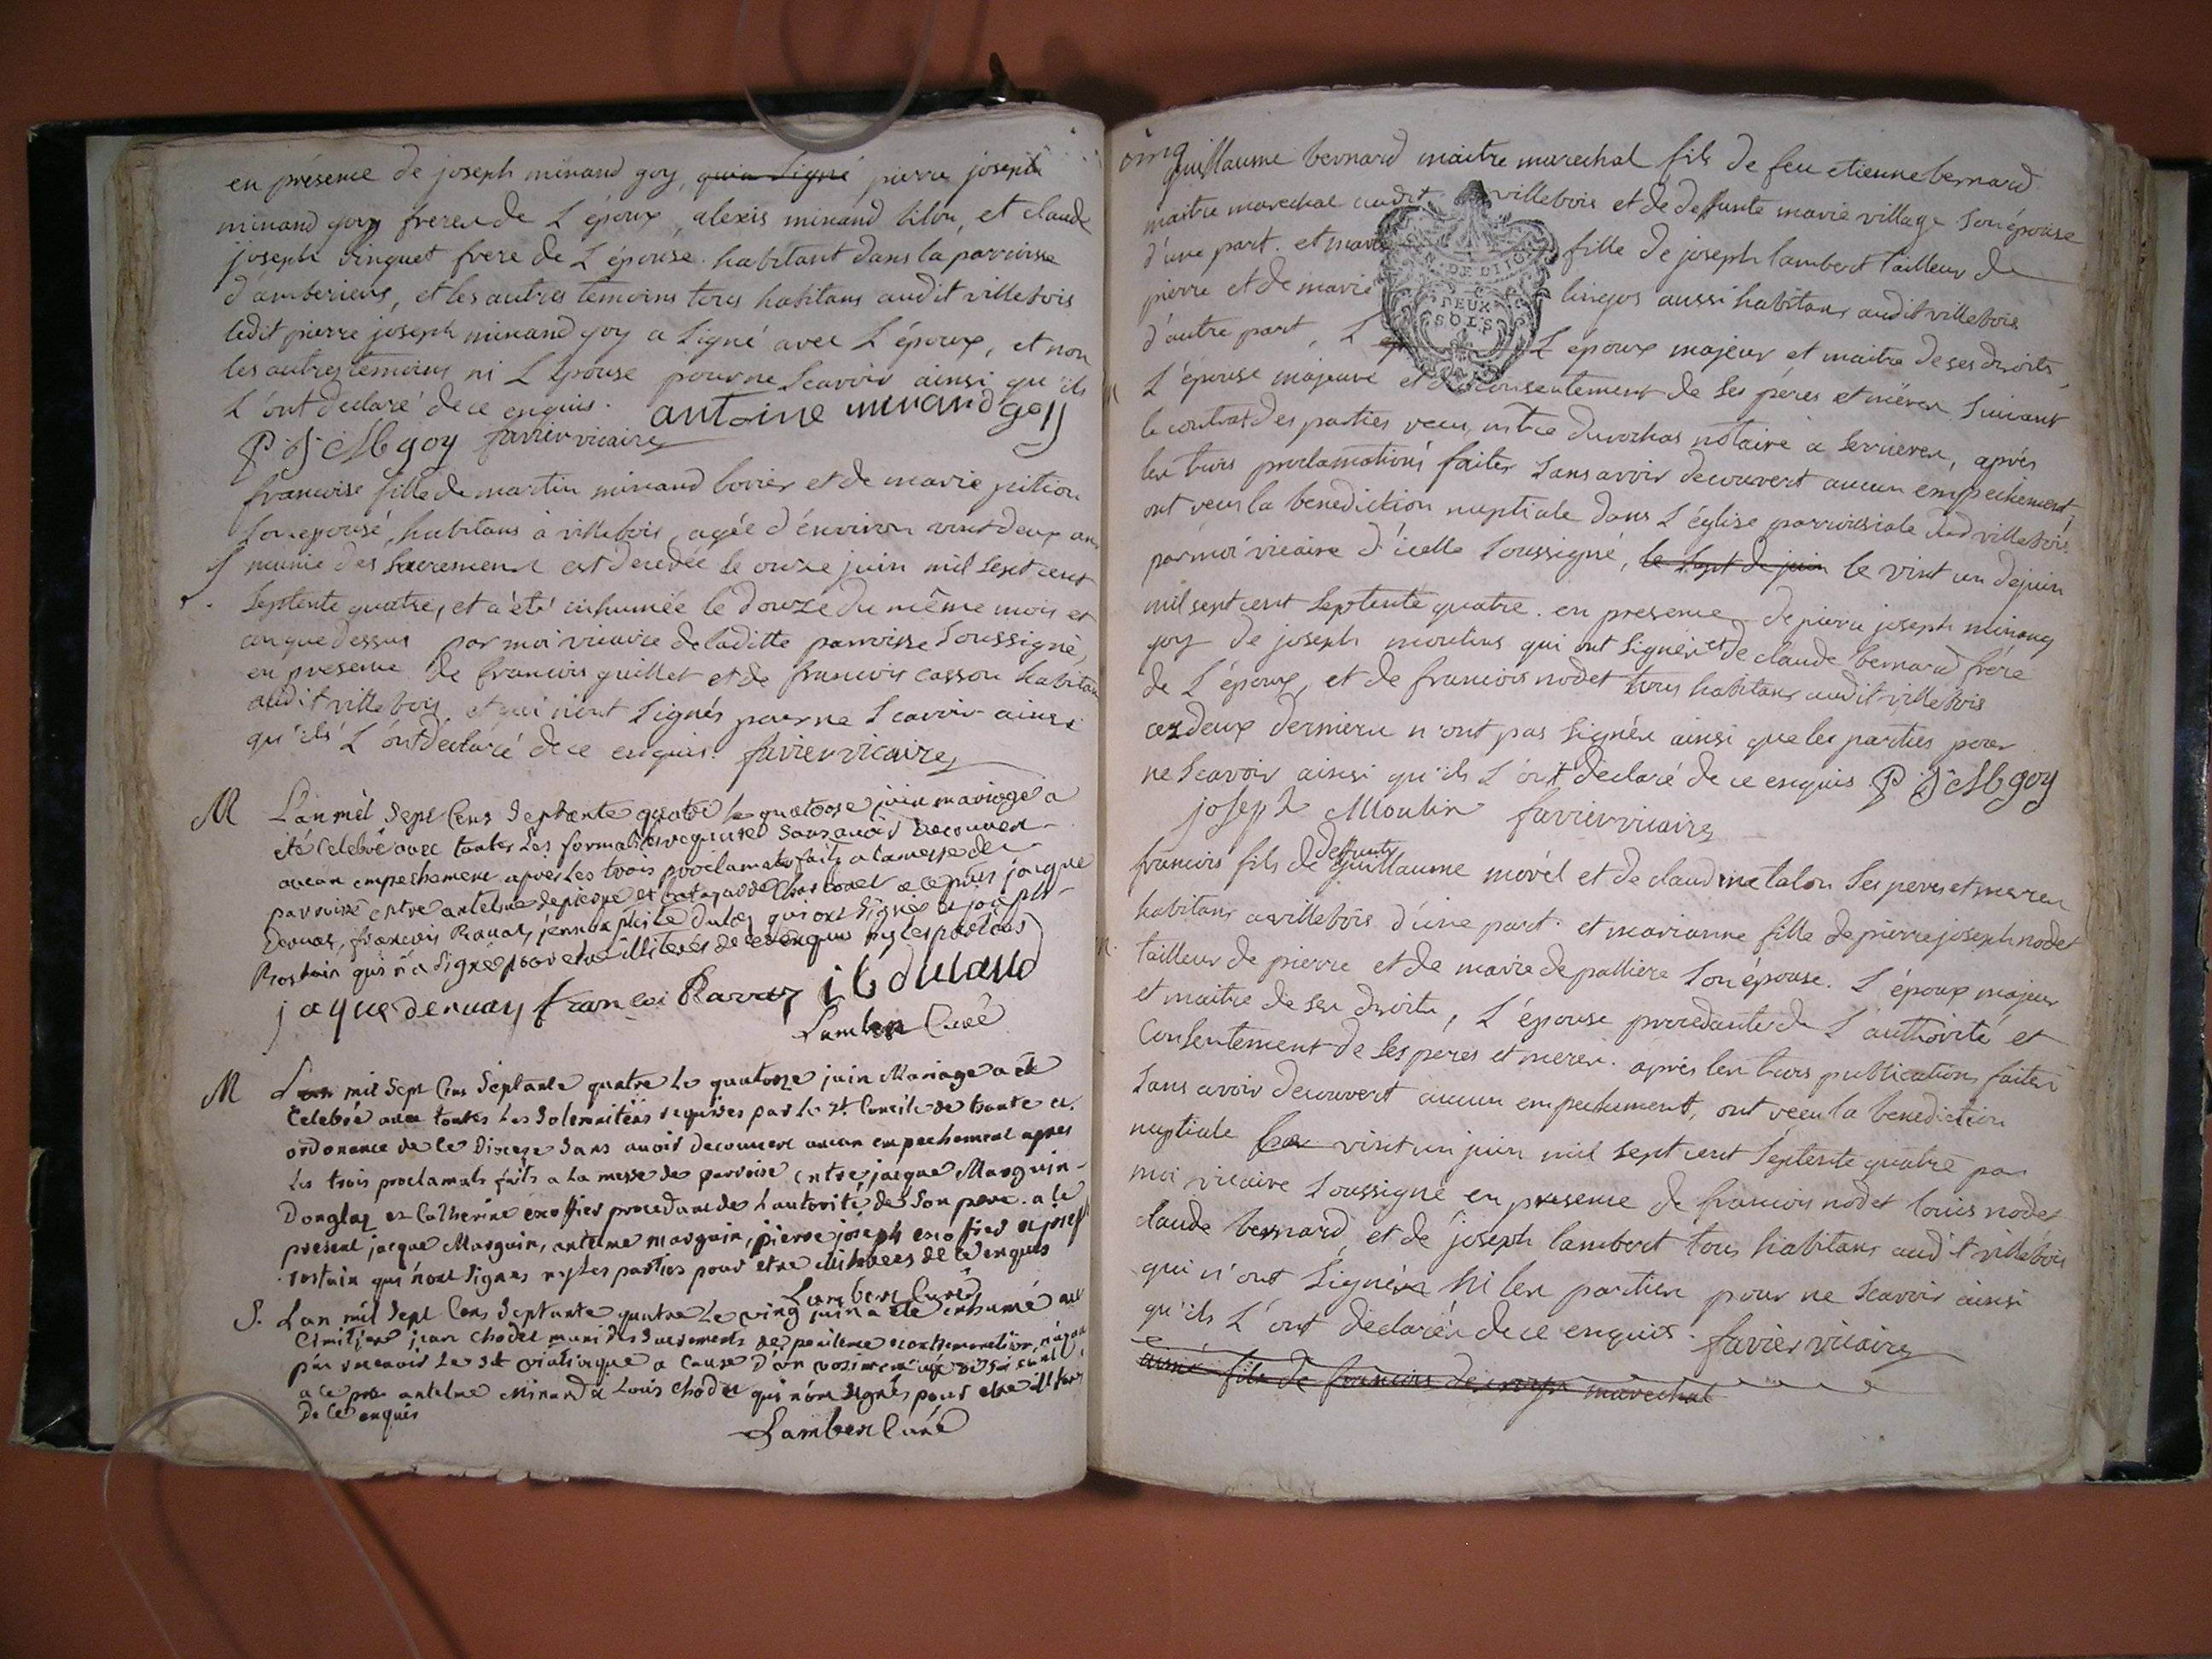 en présence de joseph minand goy, qui a signé pierre joseph
minand goy freres de L'époux, alexis minand tilon, et claude
joseph vinquet frere de L'épouse habitant dans la parroisse
d'amberieux, et les autres temoins tous habitans audit villebois
ledit pierre joseph minand goy a signé avec L'époux, et non
les autres temoins ni L'épouse pour ne scavoir ainsi qu'ils
L'ont declaré de ce enquis. antoine minand goy
P J M goy favier vicaire
francoise fille de martin minand bovier et de marie pition
son epouse, habitans à villebois, agée d'environ vint deux ans
S munie des sacremens est decedée le onze juin mil sept cent
septente quatre, et a été inhumée le douze du même mois et
an que dessus par moi vicaire de laditte parroisse soussigné,
en presence de francois guillet et de francois casson habitans
audit villebois, et qui n'ont signés pour ne scavoir ainsi
qu'ils L'ont declaré de ce enquis. favier vicaire
M L'an mil sept cens septante quatre le quatorse juin mariage a
été celebré avec toutes les formalités requises sans avoir decouvert
aucun empechement apres les trois proclamats faits a la messe de
parroisse entre antelme depierre et
francois Ravat, qui ont signé et joseph
Rostain qui n'a signé pour etre illiteré de ce enquis ny les parties
jaque deruas francoi Ravaz
Lambert Curé
M L'an mil sept cens septante quatre le quatorze juin Mariage a été
Celebré avec toutes les solemnitées requises par le st. Concile de trante et
ordonance de ce Diocese sans avoir decouvert aucun empechement apres
les trois proclamats faits a la messe de parroise entre jacque Marguin
Donglas et Catherine exoffier procedante de L'autorité de son pere. a ce
present jacque Marguin, antelme marguin, pierre joseph exoffier et joseph
rostain qui n'ont signes ny les parties pour etre illiterées de ce enquis
Lambert Curé
S. L'an mil sept cens septante quatre le ving juin a été inhumé au
Cimitiere jean chodet muni des sacrements de penitence et extremonction, n'ayant
pas recevoir le st viatique a cause d'un
a ce pnt antelme Minand et Louis chodet qui n'ont signés pour etre illiterés
De ce enquis
Lambert Curé
guillaume bernard maitre marechal fils de feu etienne bernard
maitre marechal audit villebois et de deffunte marie village son épouse
d'une part. et marie fille de joseph lambert tailleur de
pierre et de marie lingos aussi habitans audit villebois
d'autre part, L L'epoux majeur et maitre de ses droits,
L'épouse majeure et du consentement de ses péres et méres suivant
le contrat des parties receu mtre durochas notaire a serrieres, après
les trois proclamations faites sans avoir decouvert aucun empechement,
ont receu la benediction nuptiale dans L'église parroissiale dud villebois
par moi vicaire d'icelle soussigné, le sept de juin le vint un de juin
mil sept cent septente quatre. en presence de pierre joseph minand
goy de joseph moulins qui ont signés et de claude bernard frére
de L'époux, et de francois nodet tous habitans audit villebois
ces deux derniers n'ont pas signés ainsi que les parties pour
ne scavoir ainsi qu'ils L'ont déclaré de ce enquis P J M goy
joseph Moulin favier vicaire
francois fils de deffunts guillaume morel et de claudine talon ses peres et meres
habitans a villebois d'une part. et marianne fille de pierre joseph nodet
tailleur de pierre et de marie depalliere son épouse. L'époux majeur
et maitre de ses droits, L'épouse procedante de L'authorité et
Consentement de ses peres et meres. après les trois publications faites
sans avoir decouvert aucun empechement, ont receu la benediction
nuptiale vint un juin mil sept cent septente quatre par
moi vicaire soussigné en presence de francois nodet louis nodet
claude bernard, et de joseph lambert tous habitans audit villebois
qui n'ont signés ni les parties pour ne scavoir ainsi
qu'ils L'ont déclarés de ce enquis. favier vicaire
fils de francois marechal
DEUX
SOLS